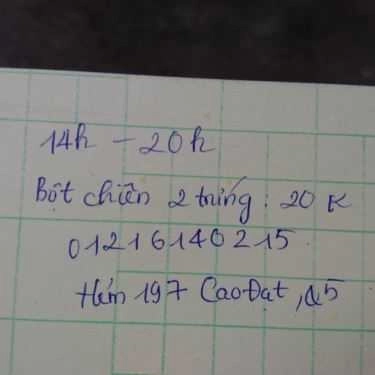 14h - 20h
Bột chiên 2 trứng : 20 K
01216140215
Hẻm 197 Cao Đạt, Q5